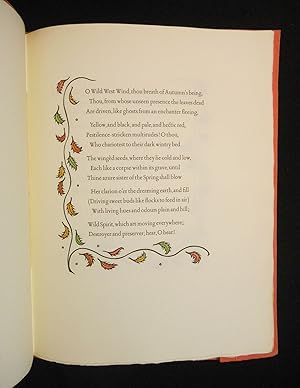 O Wild West Wind, thou breath of Autumn's being,
Thou, from whose unseen presence the leaves dead
Are driven, like ghosts from an enchanter fleeing,
Yellow, and black, and pale, and hectic red,
Pestilence-stricken multitudes! O thou,
Who chariotest to their dark wintry bed
The wingèd seeds, where they lie cold and low,
Each like a corpse within its grave, until
Thine azure sister of the Spring shall blow
Her clarion o'er the dreaming earth, and fill
(Driving sweet buds like flocks to feed in air)
With living hues and odours plain and hill;
Wild Spirit, which art moving everywhere;
Destroyer and preserver; hear, O hear!